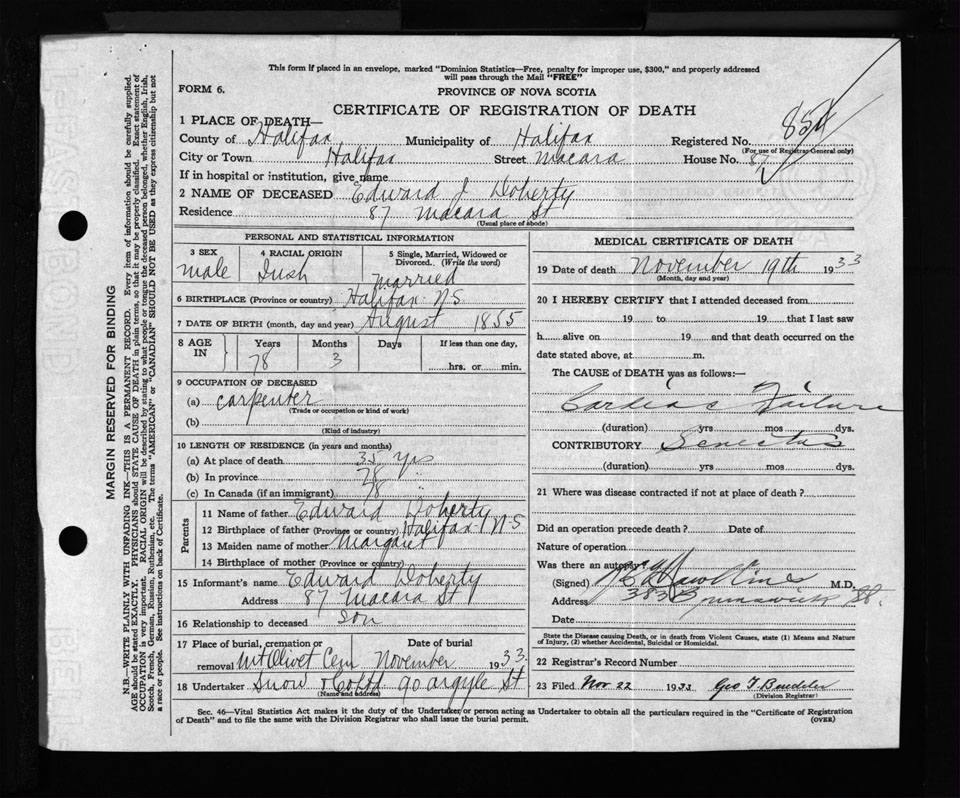 This form if placed in an envelope, marked "Dominion Statistics—Free, penalty for improper use, $300," and properly addressed
will pass through the Mail "FREE"
FORM 6.
PROVINCE OF NOVA SCOTIA
CERTIFICATE OF REGISTRATION OF DEATH
1 PLACE OF DEATH—
County of Halifax Municipality of Halifax Registered No.
(For use of Registrar General only)
City or Town Halifax Street Macara House No. 87
If in hospital or institution, give name
2 NAME OF DECEASED Edward J Doherty
Residence 87 Macara St
(Usual place of abode)
PERSONAL AND STATISTICAL INFORMATION
3 SEX male
4 RACIAL ORIGIN Irish
5 Single, Married, Widowed or Divorced. (Write the word) married
6 BIRTHPLACE (Province or country) Halifax N.S
7 DATE OF BIRTH (month, day and year) August 1855
8 AGE IN Years 78 Months 3 Days If less than one day, hrs. or min.
9 OCCUPATION OF DECEASED
(a) carpenter
(Trade or occupation or kind of work)
(b)
(Kind of industry)
10 LENGTH OF RESIDENCE (in years and months)
(a) At place of death 35 Yrs
(b) In province 78 "
(c) In Canada (if an immigrant) 78 "
Parents
11 Name of father Edward Doherty
12 Birthplace of father (Province or country) Halifax N-S
13 Maiden name of mother Margaret
14 Birthplace of mother (Province or country)
15 Informant's name Edward Doherty
Address 87 Macara St
16 Relationship to deceased son
17 Place of burial, cremation or removal Mt Olivet Cem Date of burial November 1933
18 Undertaker Snow & Co Ltd 90 argyle St
(Name and address)
MEDICAL CERTIFICATE OF DEATH
19 Date of death November 19th 1933
(Month, day and year)
20 I HEREBY CERTIFY that I attended deceased from
19 to 19 that I last saw
h alive on 19 and that death occurred on the
date stated above, at m.
The CAUSE of DEATH was as follows:—
Cardiac Failure
(duration) yrs mos dys.
CONTRIBUTORY Senectus
(duration) yrs mos dys.
21 Where was disease contracted if not at place of death?
Did an operation precede death? Date of
Nature of operation
Was there an autopsy?
(Signed) M.D.
Address 383 Brunswick St.
Date
State the Disease causing Death, or in death from Violent Causes, state (1) Means and Nature
of Injury, (2) whether Accidental, Suicidal or Homicidal.
22 Registrar's Record Number
23 Filed Nov 22 1933
(Division Registrar)
Sec. 46—Vital Statistics Act makes it the duty of the Undertaker or person acting as Undertaker to obtain all the particulars required in the "Certificate of Registration
of Death" and to file the same with the Division Registrar who shall issue the burial permit.
(OVER)
MARGIN RESERVED FOR BINDING
N.B.—WRITE PLAINLY WITH UNFADING INK—THIS IS A PERMANENT RECORD. Every item of information should be carefully supplied.
AGE should be stated EXACTLY. PHYSICIANS should STATE CAUSE OF DEATH in plain terms, so that it may be properly classified. Exact statement of
OCCUPATION is very important. RACIAL ORIGIN will be described by stating to what people or tongue the deceased person belonged, whether English, Irish,
Scotch, French, German, Russian, Ruthenian, etc. The terms "AMERICAN" or "CANADIAN" SHOULD NOT BE USED as they express citizenship but not
a race or people. See instructions on back of Certificate.